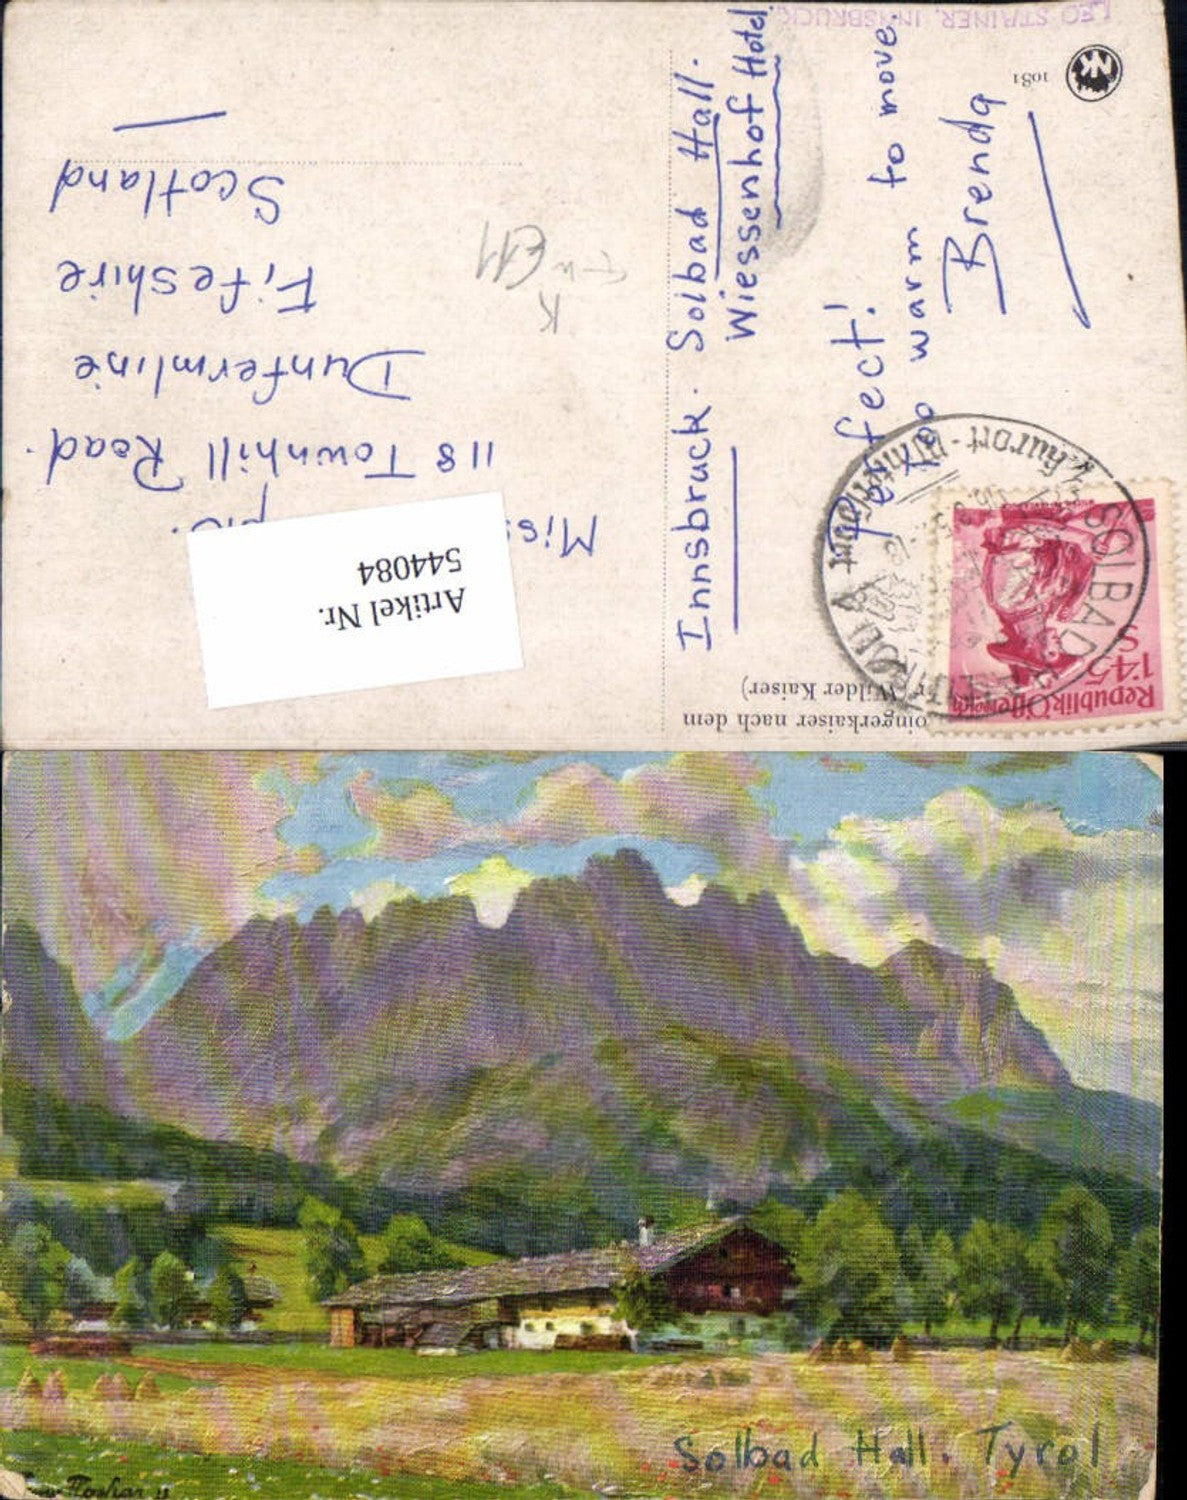 LEO STAINER, INNSBRUCK
NK
1081
Innsbruck. Solbad Hall.
Wiessenhof Hotel.
Perfect!
Too warm to move.
Brenda
118 Townhill Road.
Dunfermline
Fifeshire
Scotland
K
Artikel Nr.
544084
oingerkaiser nach dem
Wilder Kaiser)
Republik Österreich
1'45
S
SOLBAD
Kurort - Wintersport
Solbad Hall. Tyrol